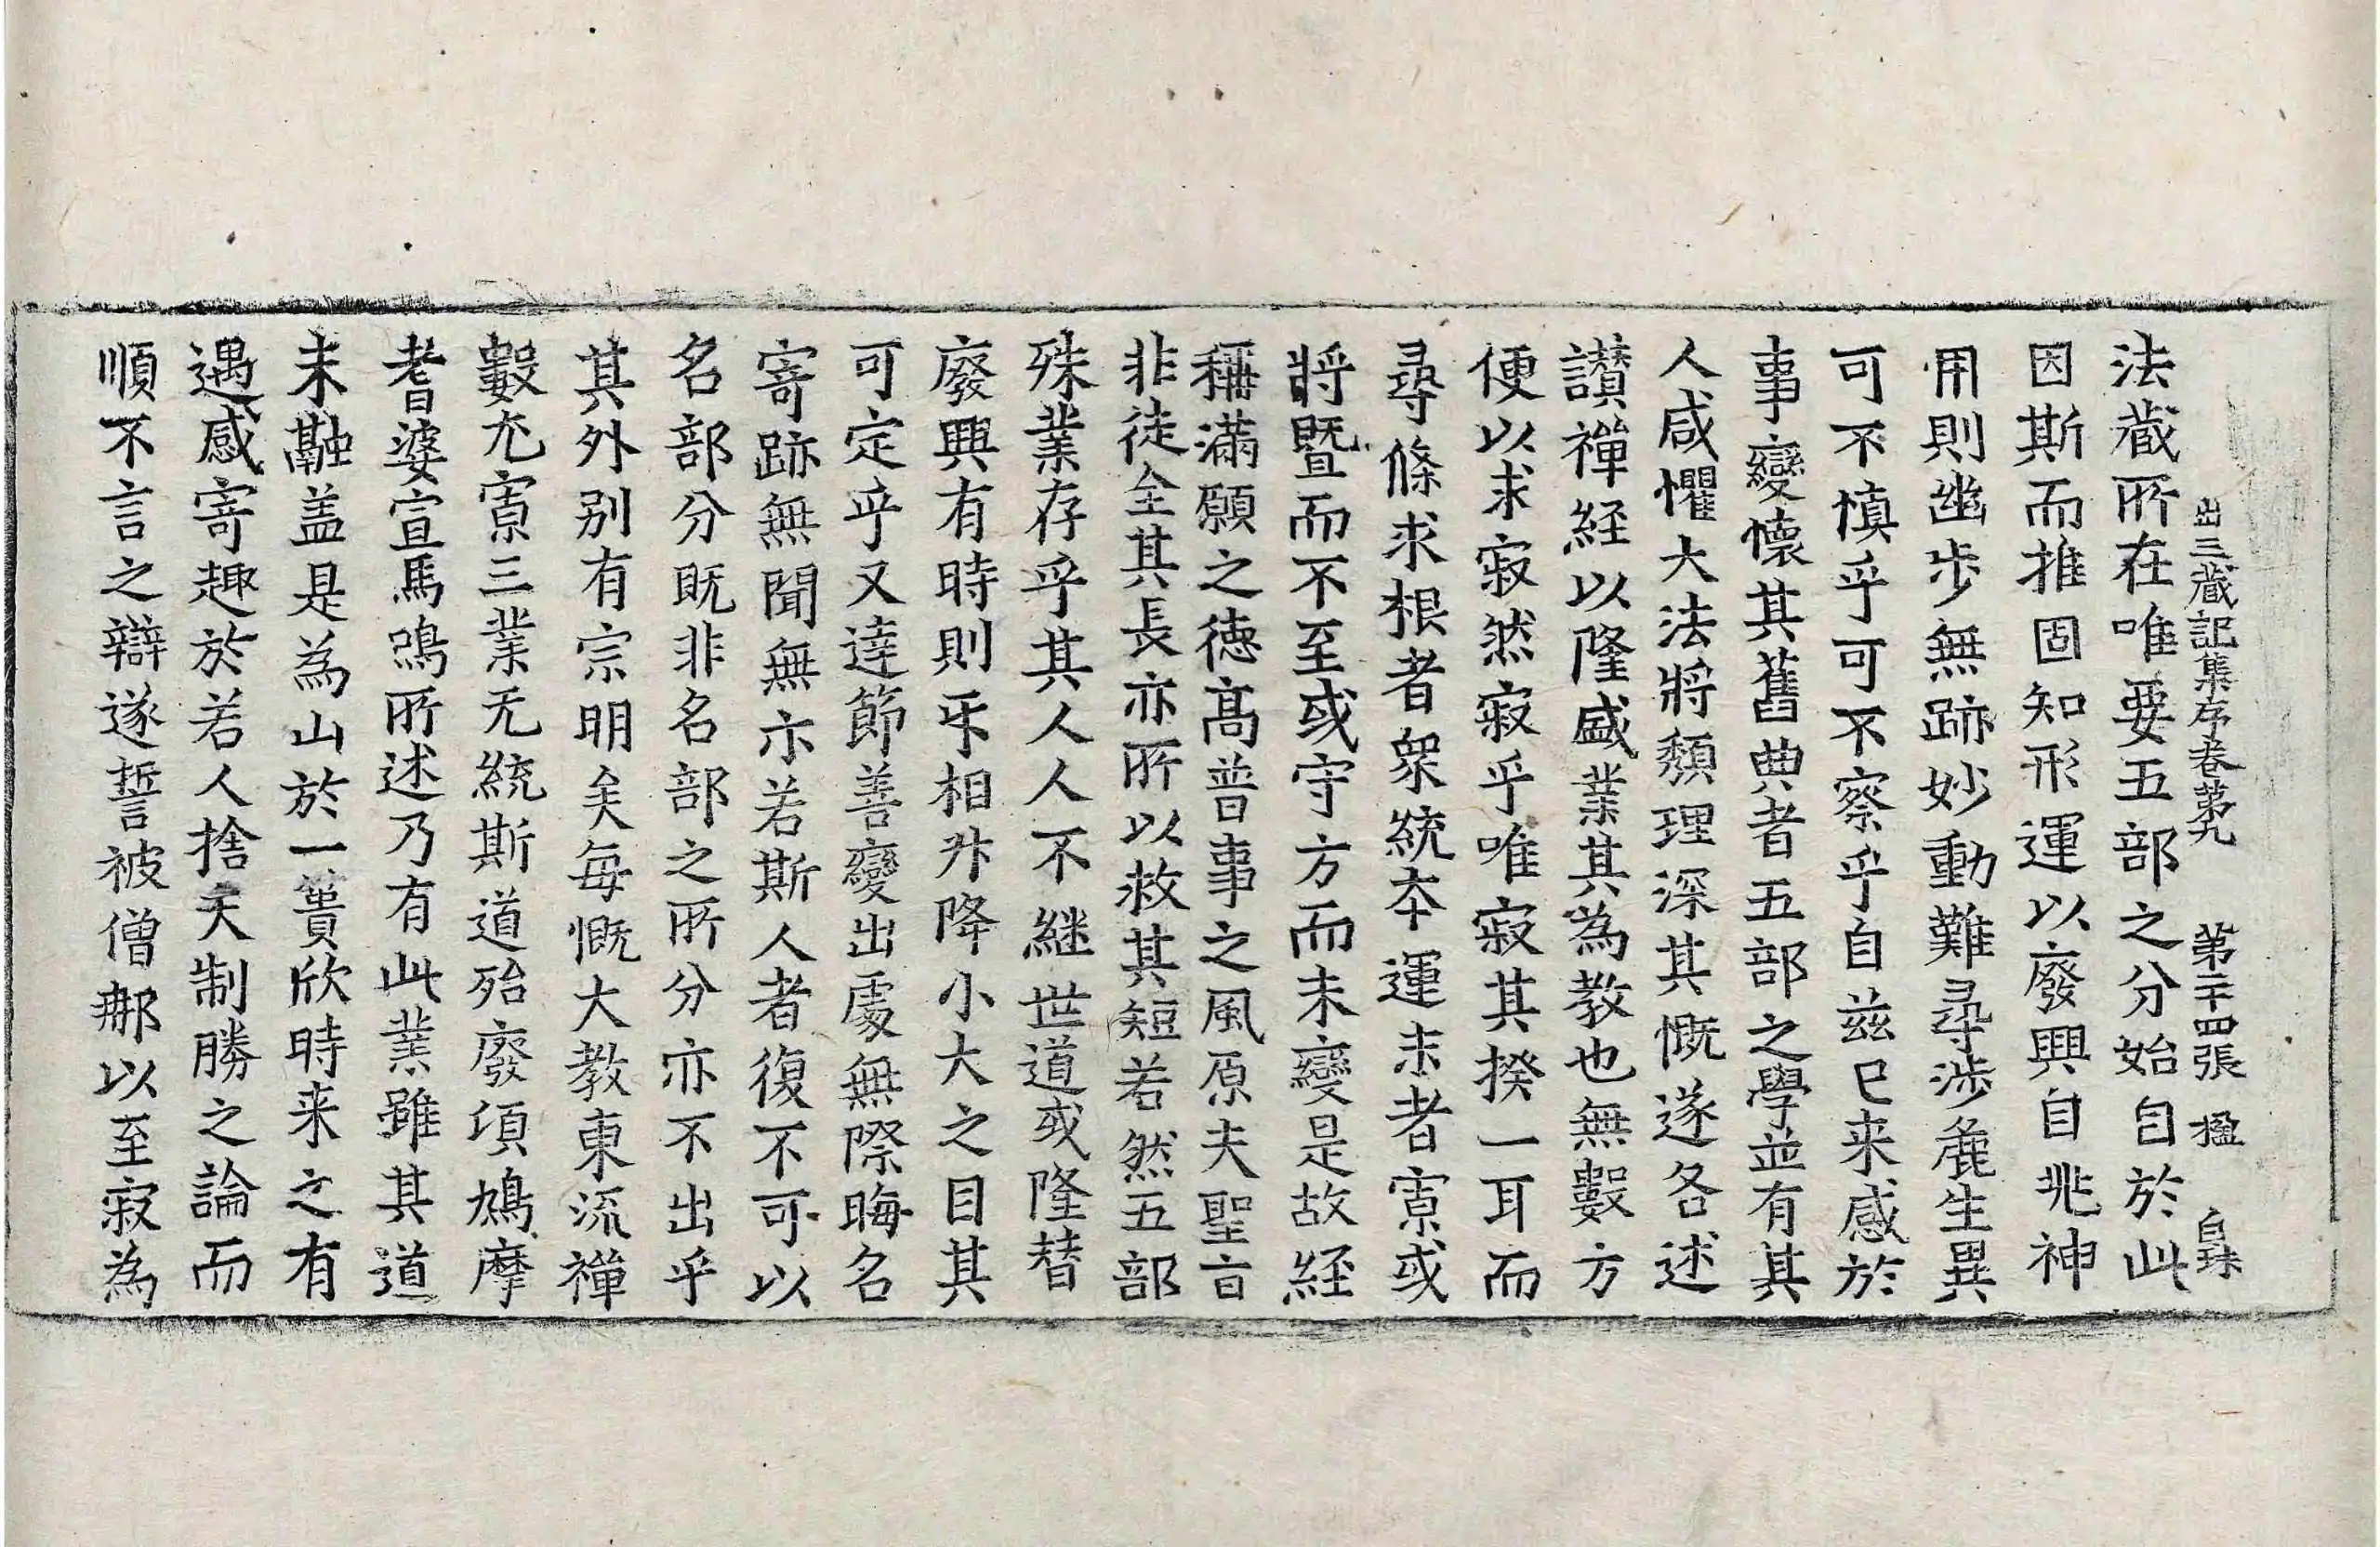 出三藏記集序卷第九 第二十四張 楹
法藏所在唯要五部之分始自於此
因斯而推固知形運以廢興自兆神
用則幽步無跡妙動難尋涉麁生異
可不慎乎可不察乎自兹已来感於
事變懷其舊典者五部之學並有其
人咸懼大法將頹理深其慨遂各述
讃禪經以隆盛業其為教也無數方
便以求寂然寂乎唯寂其揆一耳而
尋條求根者衆統本運末者寡或
將暨而不至或守方而未變是故経
稱滿願之德髙普事之風原夫聖旨
非徒全其長亦所以救其短若然五部
殊業存乎其人人不継世道或隆替
廢興有時則㸦相升降小大之目其
可定乎又達節善變出處無際晦名
寄跡無聞無示若斯人者復不可以
名部分既非名部之所分亦不出乎
其外别有宗明矣每慨大教東流禪
數尤寡三業无統斯道殆廢頃鳩摩
耆婆宣馬鳴所述乃有此業雖其道
未融盖是為山於一蕢欣時来之有
遇感寄趣於若人捨夫制勝之論而
順不言之辯遂誓被僧那以至寂為